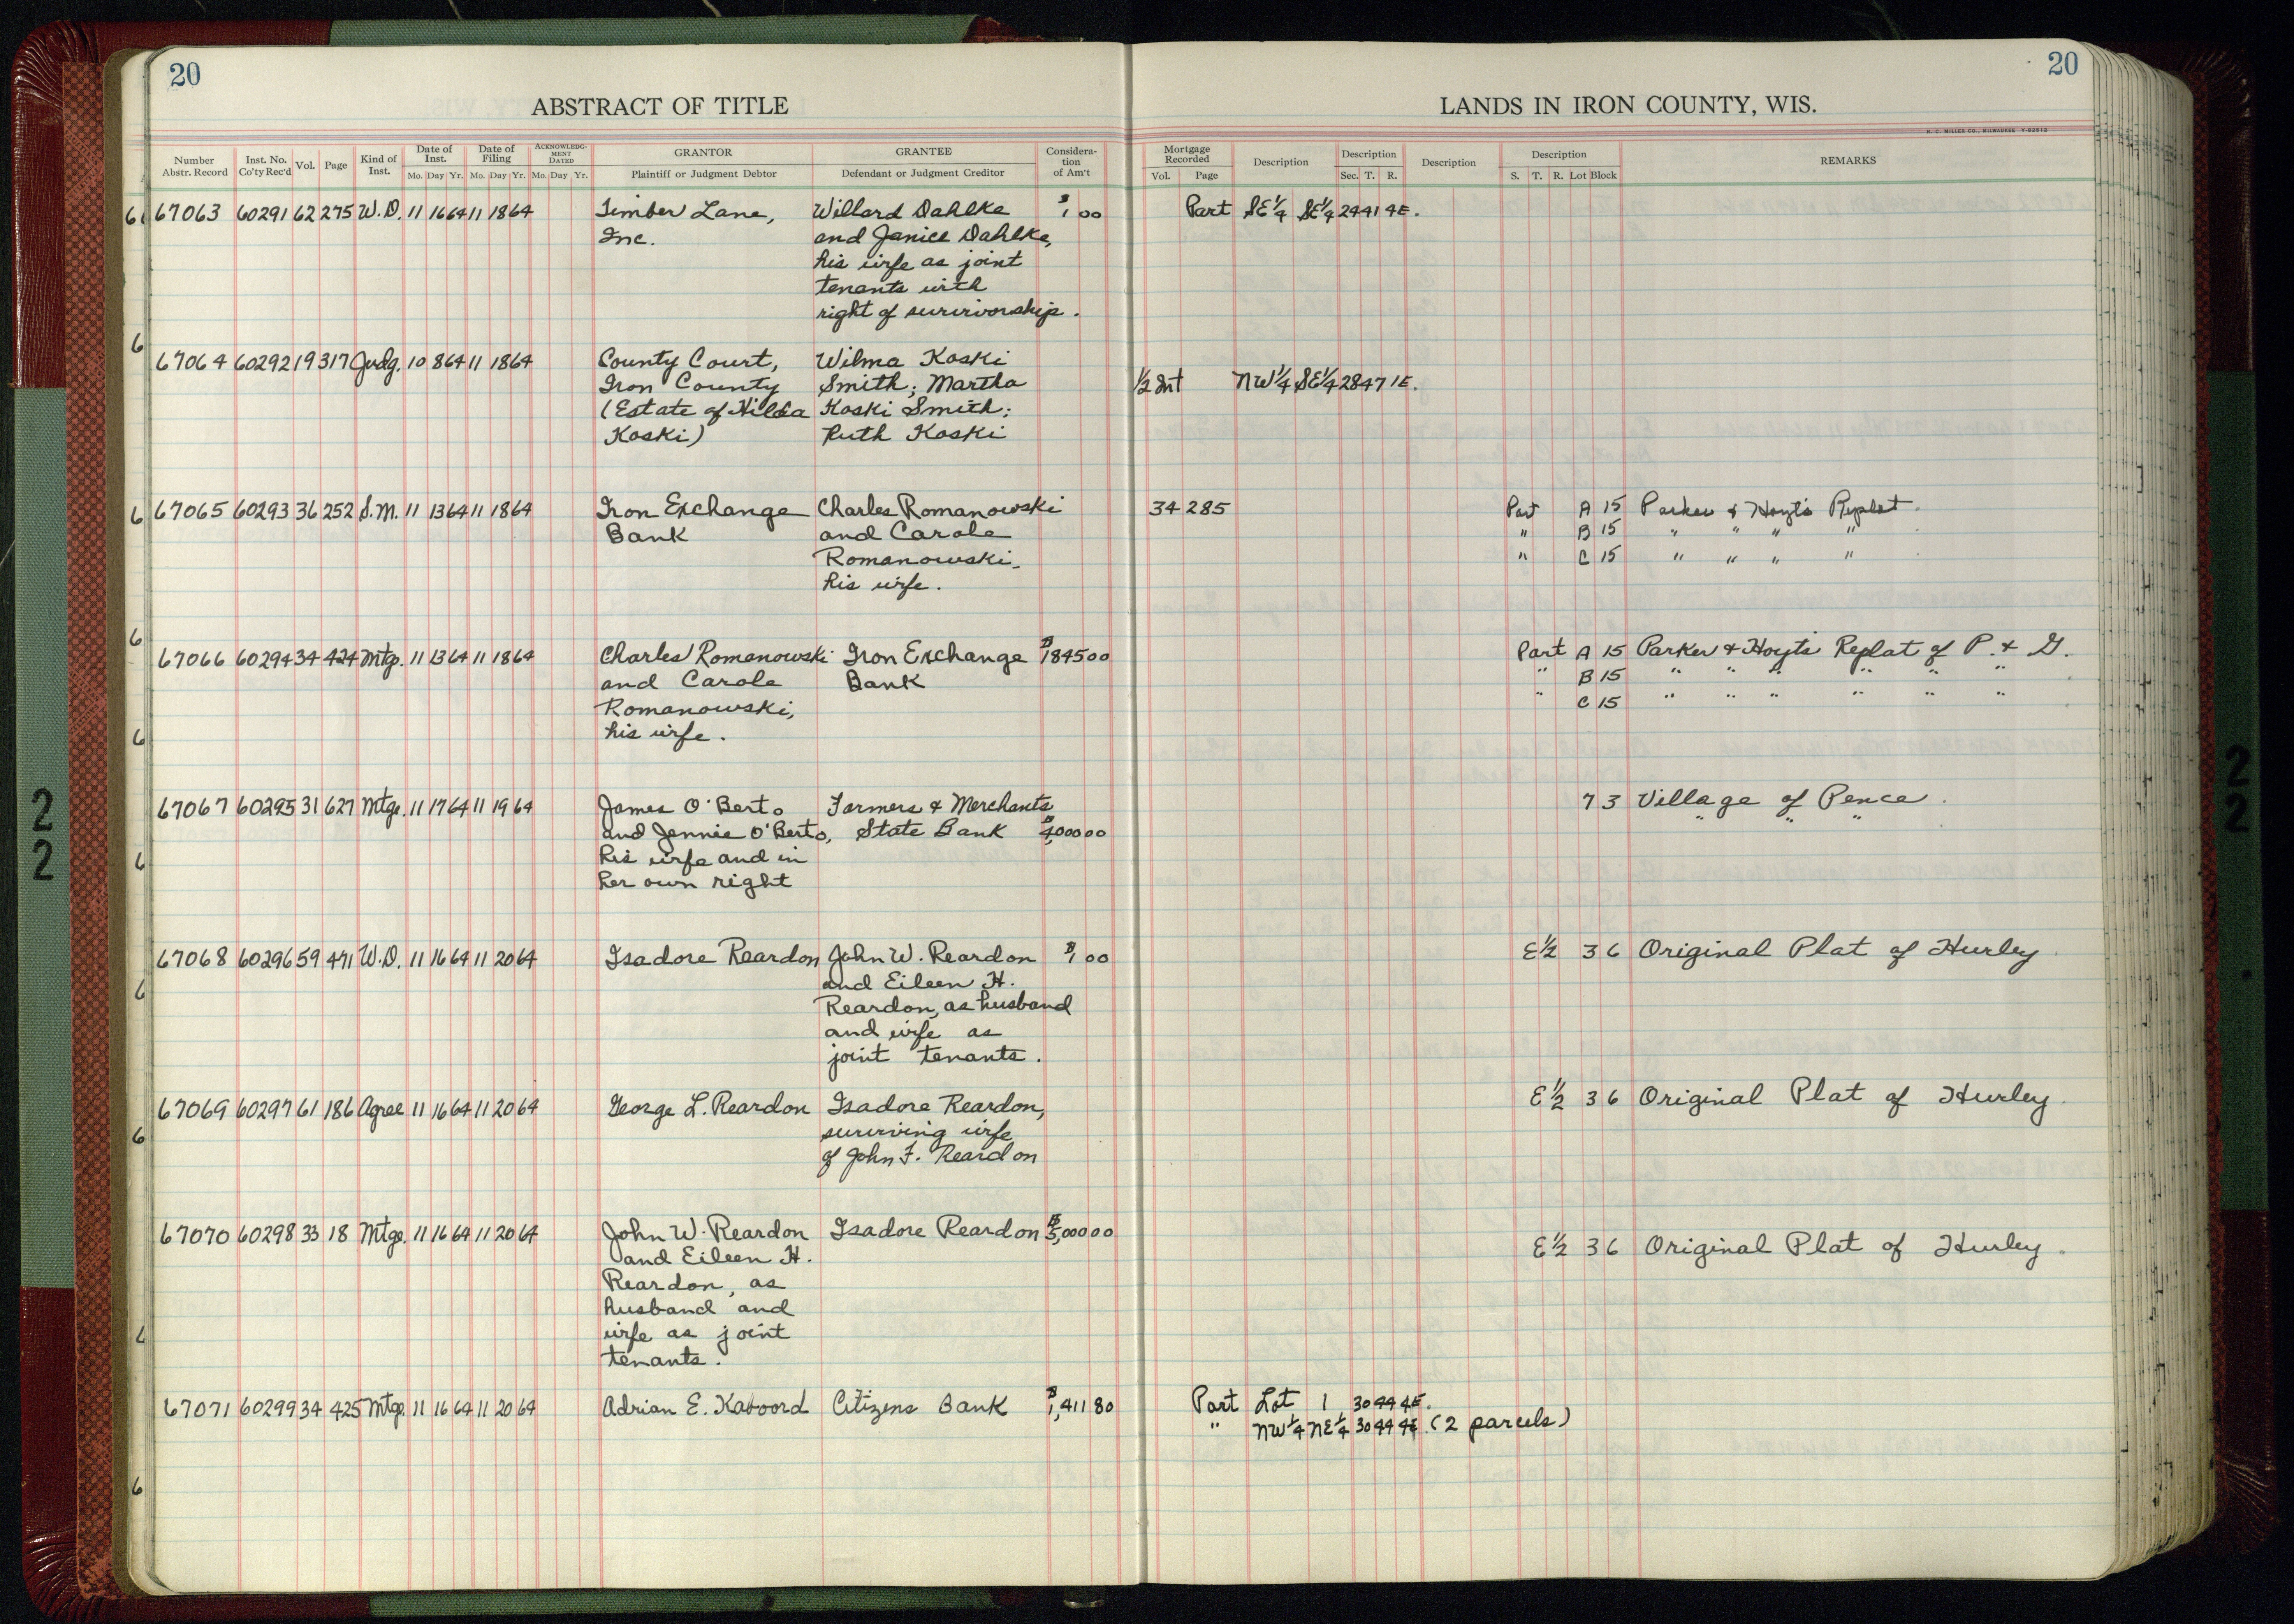 20
20
ABSTRACT OF TITLE
LANDS IN IRON COUNTY, WIS.
H. C. MILLER CO., MILWAUKEE
Number Abstr. Record
Inst. No. Co'ty Rec'd
Vol.
Page
Kind of Inst.
Date of Inst.
Mo. Day Yr.
Date of Filing
Mo. Day Yr.
ACKNOWLEDGMENT DATED
Mo. Day Yr.
GRANTOR
Plaintiff or Judgment Debtor
GRANTEE
Defendant or Judgment Creditor
Consideration of Am't
Mortgage Recorded
Vol. Page
Description
Description
Sec. T. R.
Description
Description
S. T. R. Lot Block
REMARKS
67063 60291 62 275 W.D. 11 16 64 11 18 64 Timber Lane, Willard Dahlke $1 00 Part SE1/4 SE1/4 24 41 4E.
Inc. and Janice Dahlke,
his wife as joint
tenants with
right of survivorship.
67064 60292 19 317 Judg. 10 8 64 11 18 64 County Court, Wilma Koski
Iron County Smith; Martha 1/2 Int NW1/4 SE1/4 28 47 1E.
(Estate of Hilda Koski Smith;
Koski) Ruth Koski
67065 60293 36 252 S.M. 11 13 64 11 18 64 Iron Exchange Charles Romanowski 34 285 Part A 15 Parker & Hoyt's Replat.
Bank and Carole " B 15 " " " "
Romanowski, " C 15 " " " "
his wife.
67066 60294 34 424 Mtg. 11 13 64 11 18 64 Charles Romanowski Iron Exchange $1845 00 Part A 15 Parker & Hoyt's Replat of P. & G.
and Carole Bank " B 15 " " " " " "
Romanowski, " C 15 " " " " " "
his wife.
67067 60295 31 627 Mtge. 11 17 64 11 19 64 James O'Berto Farmers & Merchants 7 3 Village of Pence.
and Jennie O'Berto, State Bank $4,000 00 " " "
his wife and in
her own right
67068 60296 59 471 W.D. 11 16 64 11 20 64 Isadore Reardon John W. Reardon $1 00 E1/2 3 6 Original Plat of Hurley
and Eileen H.
Reardon, as husband
and wife as
joint tenants.
67069 60297 61 186 Agree 11 16 64 11 20 64 George L. Reardon Isadore Reardon, E1/2 3 6 Original Plat of Hurley.
surviving wife
of John F. Reardon
67070 60298 33 18 Mtge. 11 16 64 11 20 64 John W. Reardon Isadore Reardon $5,000 00 E1/2 3 6 Original Plat of Hurley.
and Eileen H.
Reardon, as
husband and
wife as joint
tenants.
67071 60299 34 425 Mtge. 11 16 64 11 20 64 Adrian E. Kaboord Citizens Bank $1,411 80 Part Lot 1 30 44 4E.
" NW1/4 NE1/4 30 44 4E. (2 parcels)